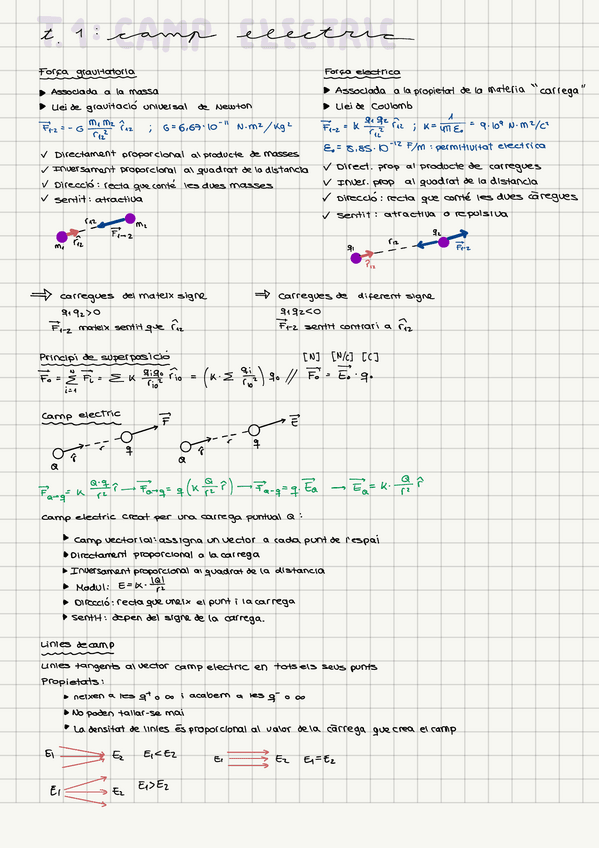 T.1: CAMP ELECTRIC
t. 1: camp electric
Força gravitatoria
▸ Associada a la massa
▸ Llei de gravitació universal de Newton
F⃗₁₋₂ = - G m₁m₂/r₁₂² r̂₁₂ ; G = 6,67·10⁻¹¹ N·m²/Kg²
✓ Directament proporcional al producte de masses
✓ Inversament proporcional al quadrat de la distancia
✓ Direcció: recta que conté les dues masses
✓ Sentit: atractiva
m₁ r̂₁₂ r₁₂ F⃗₁₋₂ m₂
Força electrica
▸ Associada a la propietat de la materia "carrega"
▸ Llei de Coulomb
F⃗₁₋₂ = K q₁q₂/r₁₂² r̂₁₂ ; K = 1/4πε₀ = 9·10⁹ N·m²/c²
ε₀ = 8,85·10⁻¹² F/m : permitivitat electrica
✓ Direct. prop al producte de carregues
✓ Inver. prop al quadrat de la distancia
✓ Direcció: recta que conté les dues càregues
✓ Sentit: atractiva o repulsiva
q₁ r̂₁₂ r₁₂ q₂ F⃗₁₋₂
⇒ carregues del mateix signe
q₁q₂>0
F⃗₁₋₂ mateix sentit que r̂₁₂
⇒ carregues de diferent signe
q₁q₂<0
F⃗₁₋₂ sentit contrari a r̂₁₂
Principi de superposició
[N] [N/c] [C]
F⃗₀ = Σᵢ₌₁ᴺ F⃗ᵢ = Σ K qᵢq₀/rᵢ₀² r̂ᵢ₀ = (K·Σ qᵢ/rᵢ₀²) q₀ // F⃗₀ = E⃗₀·q₀
Camp electric
Q r̂ r q F⃗ Q r̂ r q E⃗
F⃗Q→q = K Q·q/r² r̂ → F⃗Q→q = q (K Q/r² r̂) → F⃗Q→q = q E⃗Q → E⃗Q = K· Q/r² r̂
Camp electric creat per una carrega puntual Q:
▸ Camp vectorial: assigna un vector a cada punt de l'espai
▸ Directament proporcional a la carrega
▸ Inversament proporcional al quadrat de la distancia
▸ Modul: E = K· |Q|/r²
▸ Direcció: recta que uneix el punt i la carrega
▸ Sentit: depen del signe de la carrega.
Linies de camp
Linies tangents al vector camp electric en tots els seus punts
Propietats:
▸ neixen a les q⁺ o ∞ i acaben a les q⁻ o ∞
▸ No poden tallar-se mai
▸ La densitat de linies és proporcional al valor de la càrrega que crea el camp
E₁ E₂ E₁<E₂ E₁ E₂ E₁=E₂
E₁ E₂ E₁>E₂